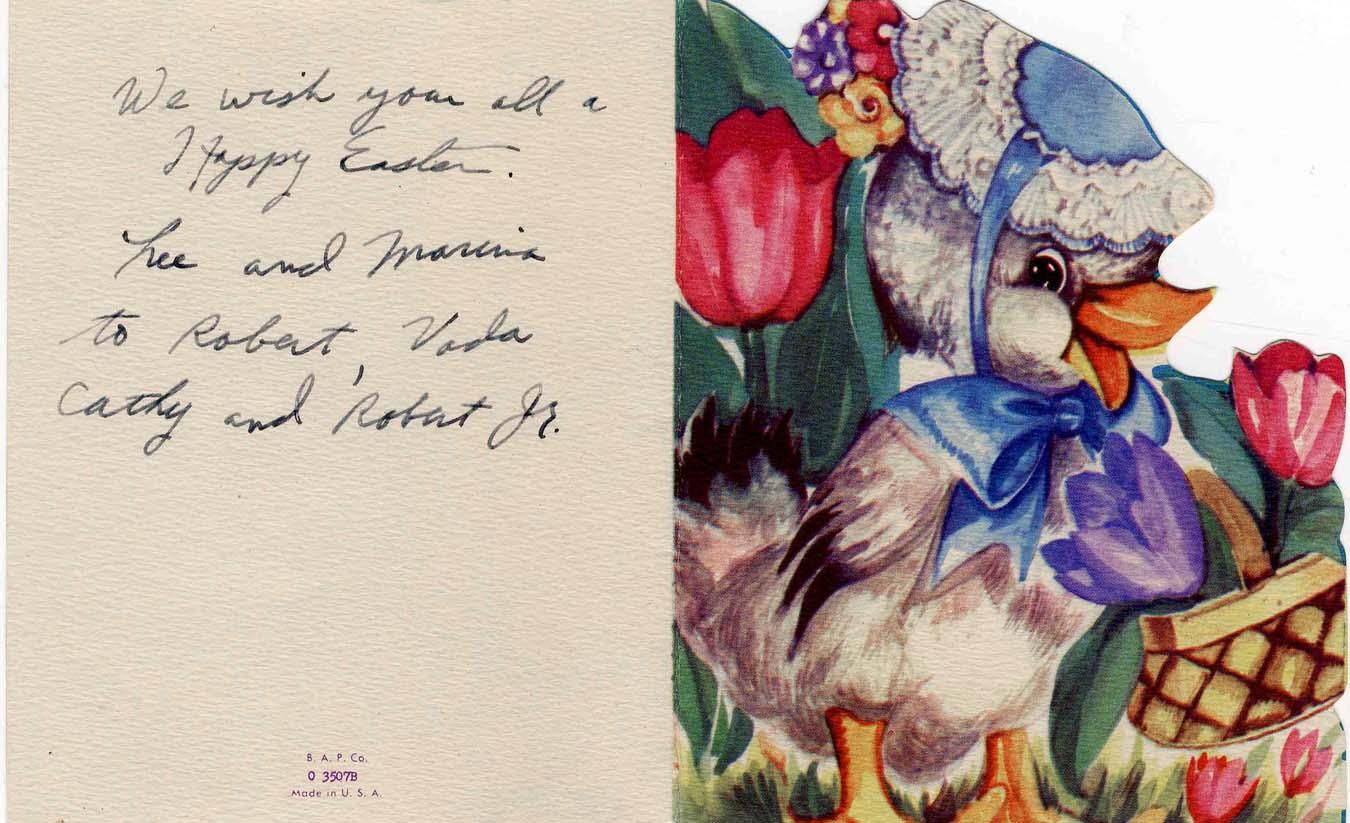 We wish your all a
Happy Easter.
Lee and Marina
to Robert, Vada
Cathy and Robert Jr.
B. A. P. Co.
0 3507B
Made in U. S. A.